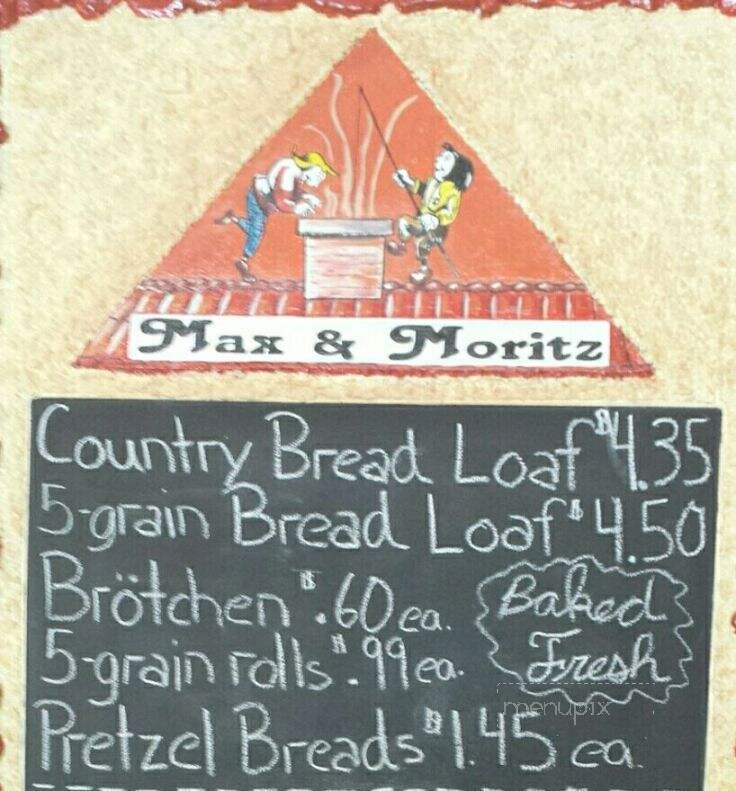 Max & Moritz
Country Bread Loaf $4.35
5-grain Bread Loaf $4.50
Brötchen $.60 ea.
5-grain rolls $.99 ea.
Baked
Fresh
menupix
Pretzel Breads $1.45 ea.